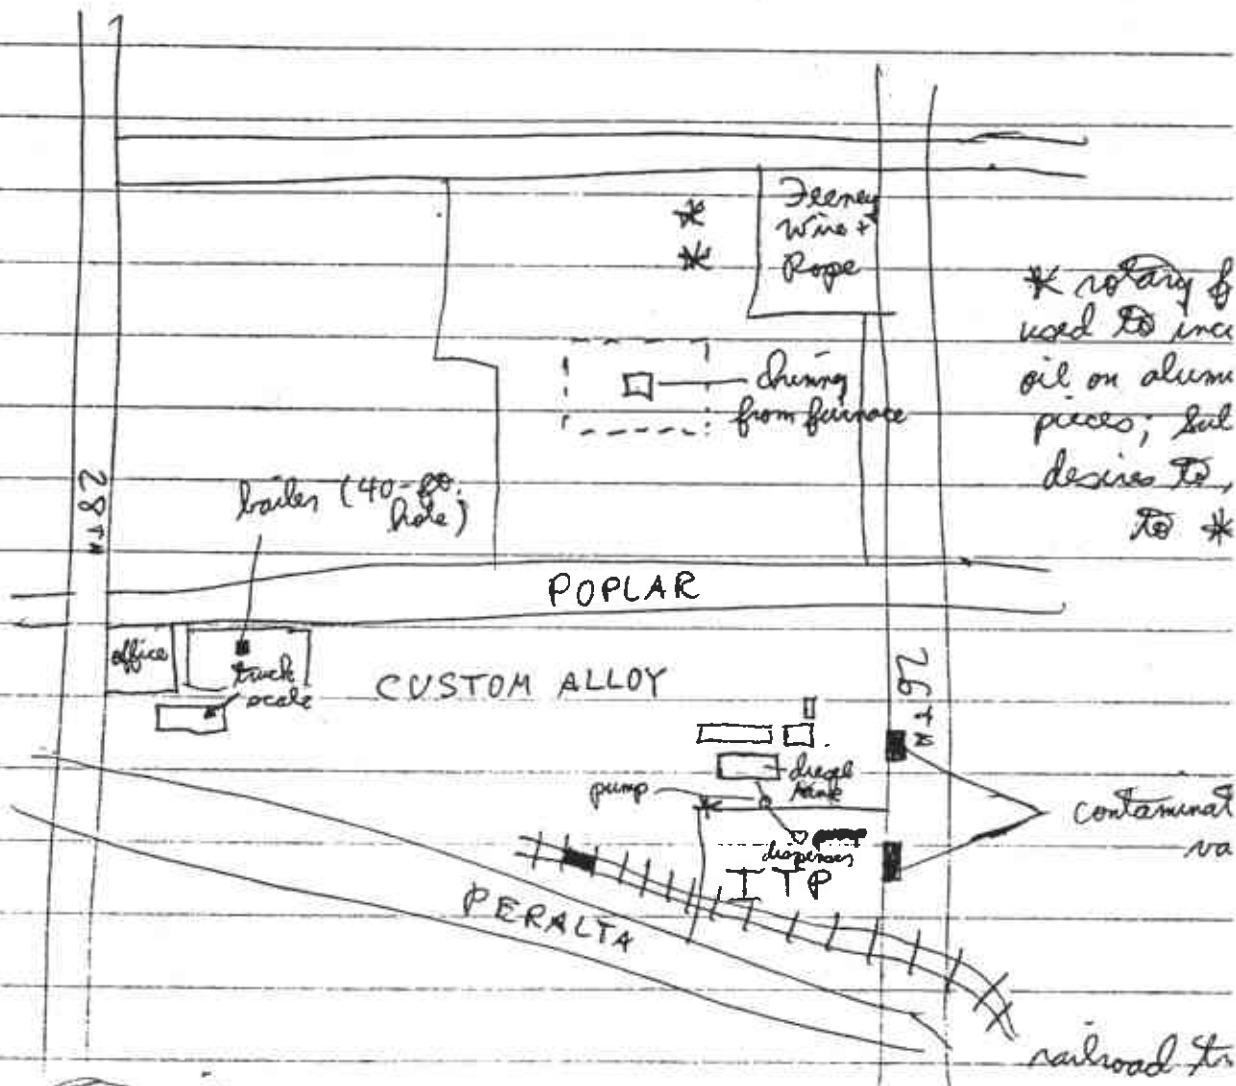 Feeney
Wire +
Rope
*
*
* rotary f
used to inci
oil on alumi
pieces; Sul
desires to,
to *
from furnace
28TH
bailer (40-ft.
hole)
POPLAR
office
truck
scale
CUSTOM ALLOY
26TH
diesel
tank
pump
dispenser
ITP
contaminat
va
PERALTA
railroad tr